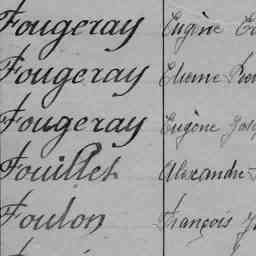 Fougeray Eugène
Fougeray Etienne
Fougeray Eugène
Fouillet Alexandre
Foulon François